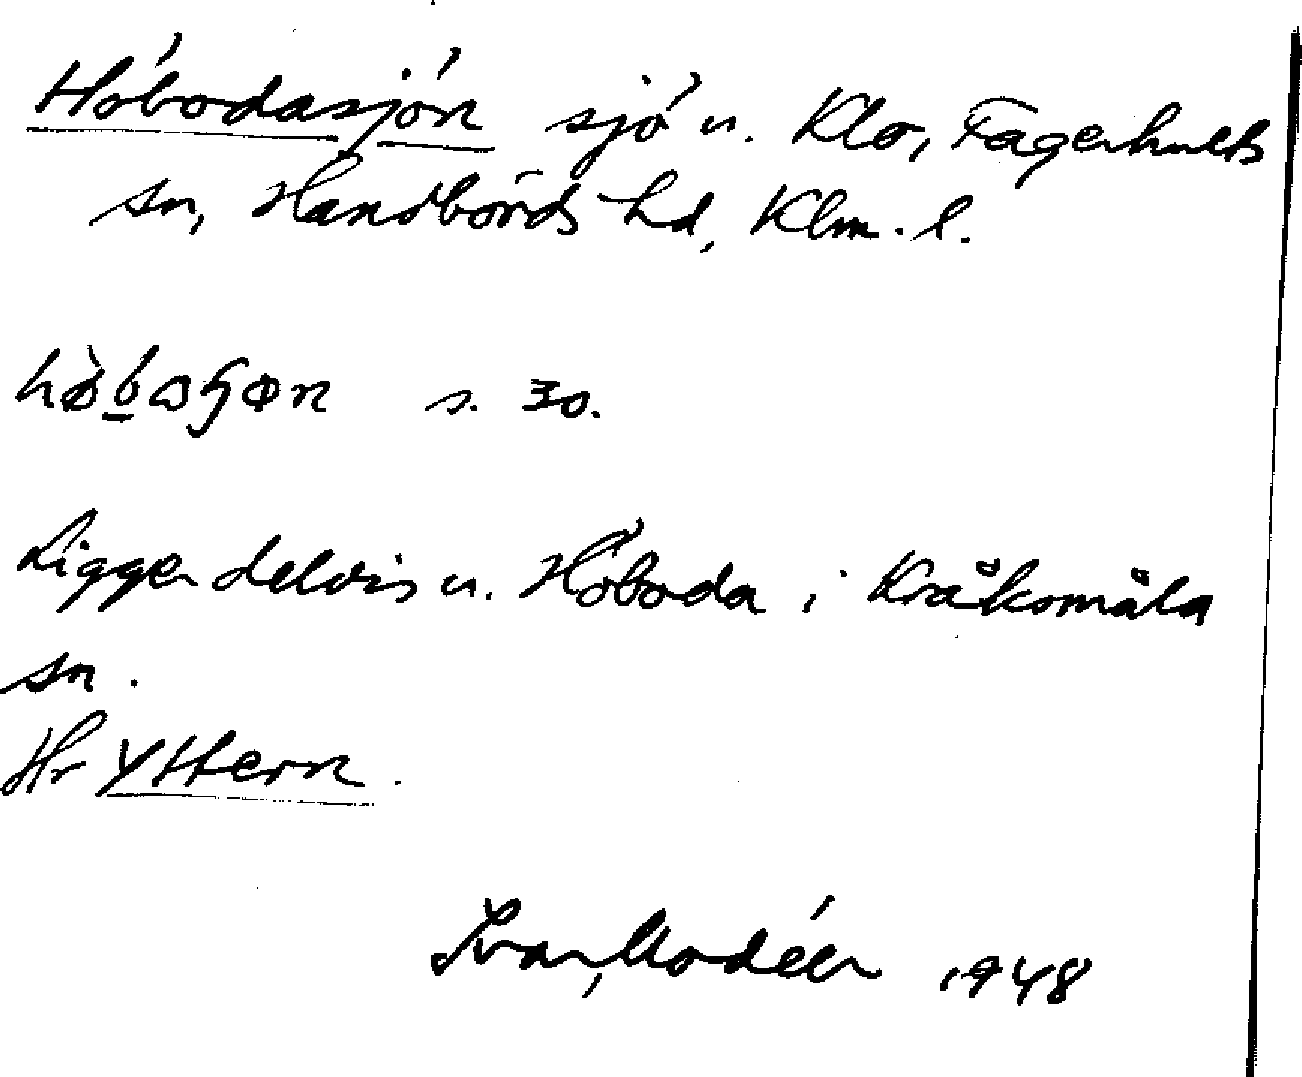 Höbodasjön sjö u. Klo, Fagerhults
sn, Handbörds hd, Klm. l.
s. 30.
Ligger delvis u. Höboda i Kråksmåla
sn.
Hr Yttern.
Ivar Modéer 1948